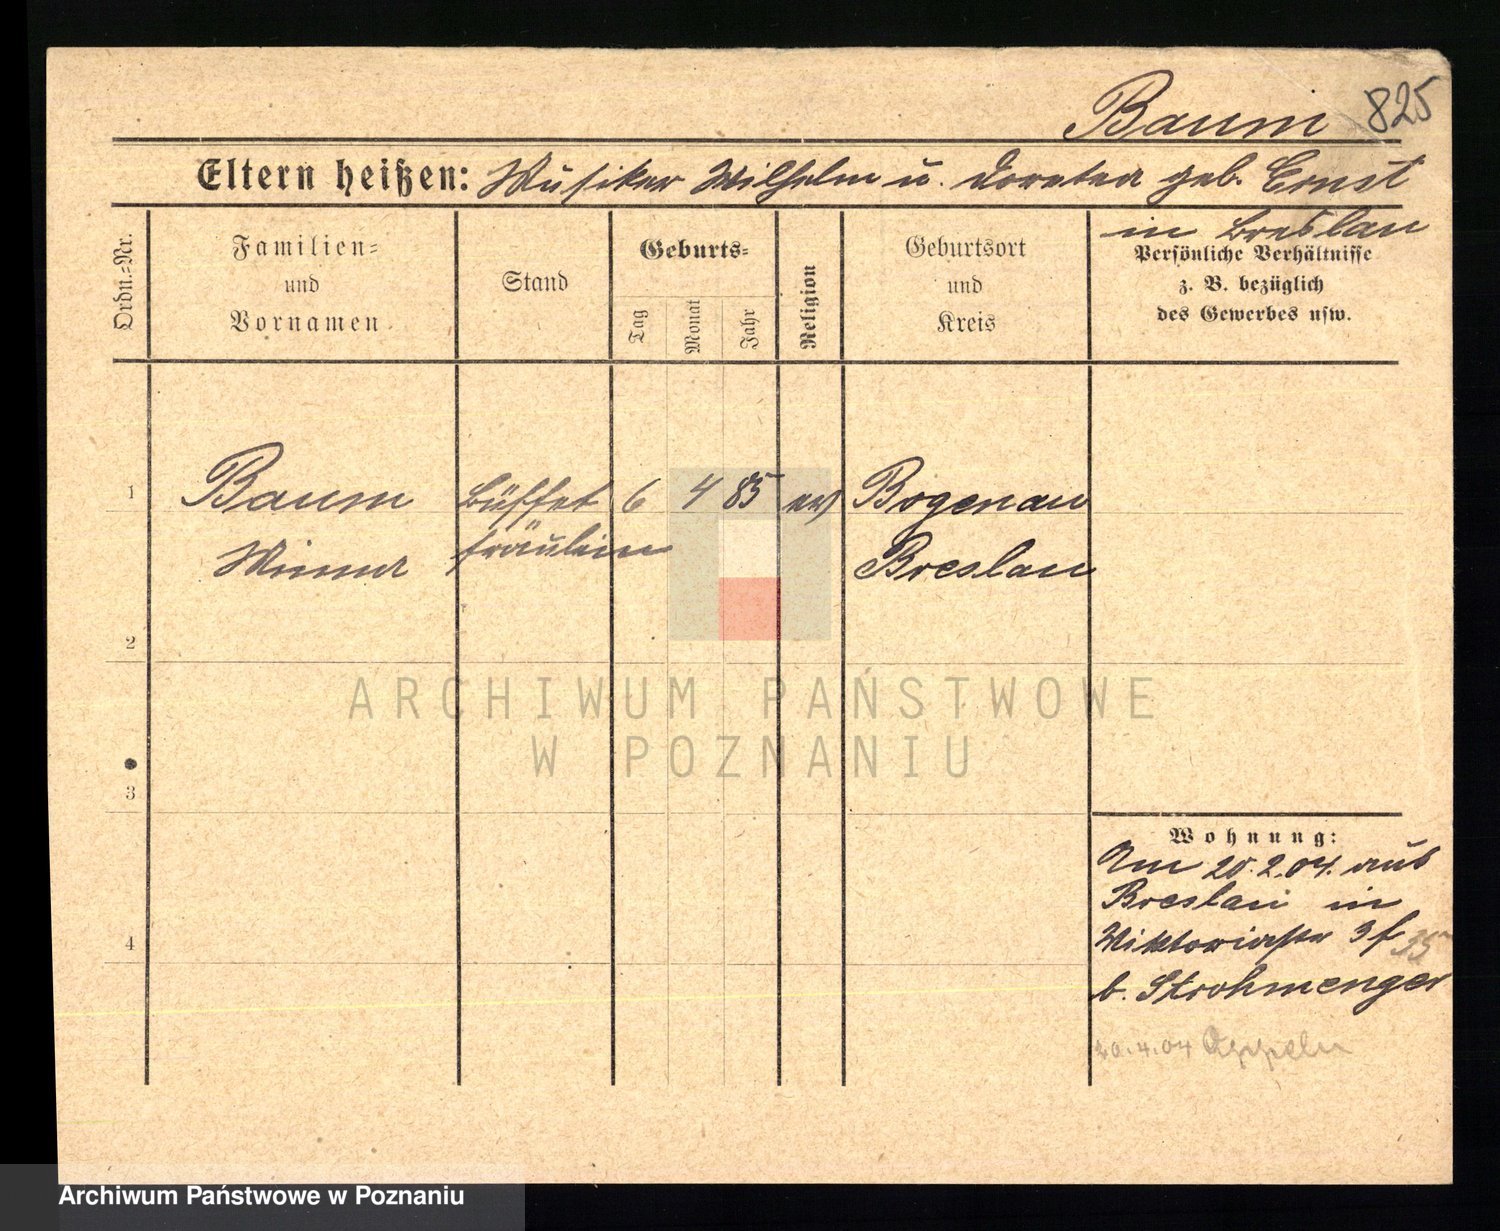 Baum 825
Eltern heißen: Musiker Wilhelm u. Dorotea geb. Ernst
in Breslau
Ordn.-Nr.
Familien-
und
Vornamen
Stand
Geburts-
Tag
Monat
Jahr
Religion
Geburtsort
und
Kreis
Persönliche Verhältnisse
z. B. bezüglich
des Gewerbes usw.
1 Baum Büffet 6 4 85 ev Bogenau
Minna fräulein Breslau
2
3
4
Wohnung:
Am 20.2.04. aus
Breslau in
Viktoriastr 3 35
b. Strohmenger
20.4.04 Oppeln
ARCHIWUM PAŃSTWOWE
W POZNANIU
Archiwum Państwowe w Poznaniu